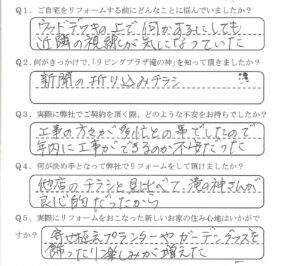 Q1. ご自宅をリフォームする前にどんなことに悩んでいましたか？
ウッドデッキの上で何かするにしても
近隣の視線が気になっていた
Q2. 何がきっかけで、「リビングプラザ滝の神」を知って頂きましたか？
新聞の折り込みチラシ
Q3. 実際に弊社でご契約を頂く際、どのような不安をお持ちでしたか？
工事の方々が多忙との事でしたので
年内に工事ができるのか不安だった
Q4. 何が決め手となって弊社でリフォームをして頂けましたか？
他店のチラシと見比べて 滝の神さんが
良心的だったから
Q5. 実際にリフォームをおこなった新しいお家の住み心地はいかがで
すか？
寄せ植えプランターやガーデングッズを
飾ったり楽しみが増えた